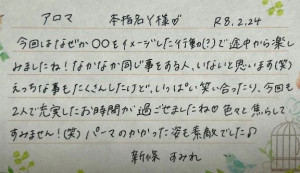 アロマ 本指名Y様♡ R8.2.24
今回はなぜか〇〇をイメージした行動(?)で途中から楽し
みましたね!なかなか同じ事をする人、いないと思います(笑)
えっちな事もたくさんしたけど、いっぱい笑い合ったり、今回も
2人で充実したお時間が過ごせましたね♡色々と焦らして
すみません!(笑)パーマのかかった姿も素敵でした♪
新條 すみれ